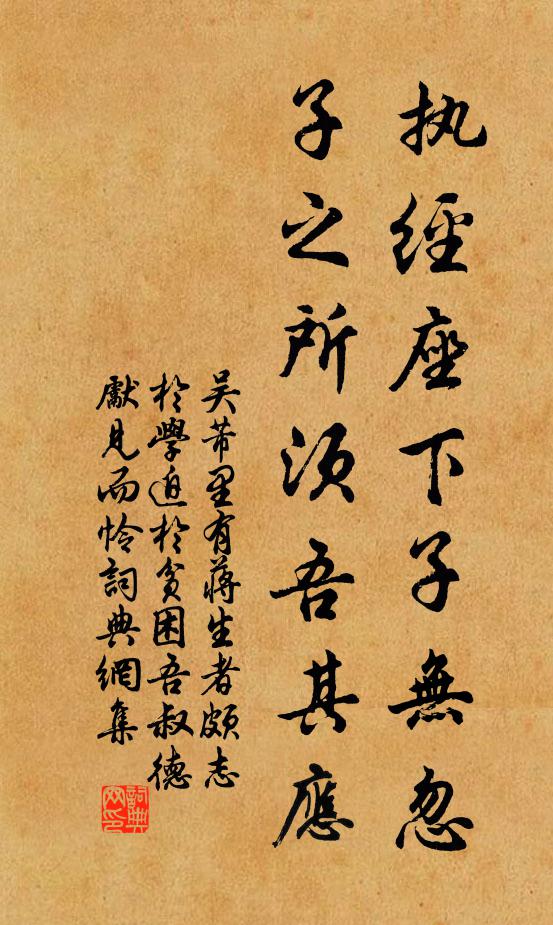 执經座下子無忽
子之所須吾其應
吴芾里有蔣生者頗志
於學迫於貧困吾叔德
獻見而怜詞典網集
詞典网印